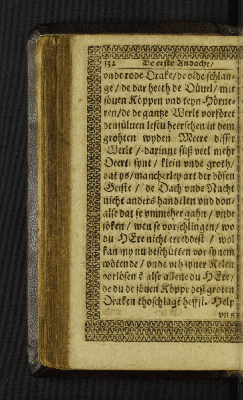 132 De erste Andacht/
vnde rode Drake/ de olde schlan-
ge/ de dar heeth de Düuel/ mit
söuen Köppen vnd teyn Hörne-
ren/ de de gantze Werlt vorföret
grohten wyden Meere disser
Werlt/ darinne süß veel mehr
Deert synt/ klein vnde groth/
dat ys/ mancherley art der bösen
Geiste/ de Dach vnde Nacht
nicht anders handelen vnd don/
alse dat se vmmeher gahn/ vnde
söken/ wen se vorschlingen/ wo
du HEre nicht erreddest/ wol
kan my nu beschütten vor synem
wötende/ vnde vth syner Kelen
vorlösen/ alse allene du HEre/
de du de söuen Köppe deß groten
Draken thoschlagē heffst. Help
vns